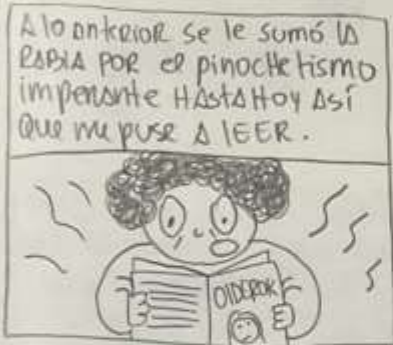 A lo anterior se le sumó la
RABIA POR el pinochetismo
imperante HASTA HOY ASÍ
que me puse A lEER.
OIDEROK